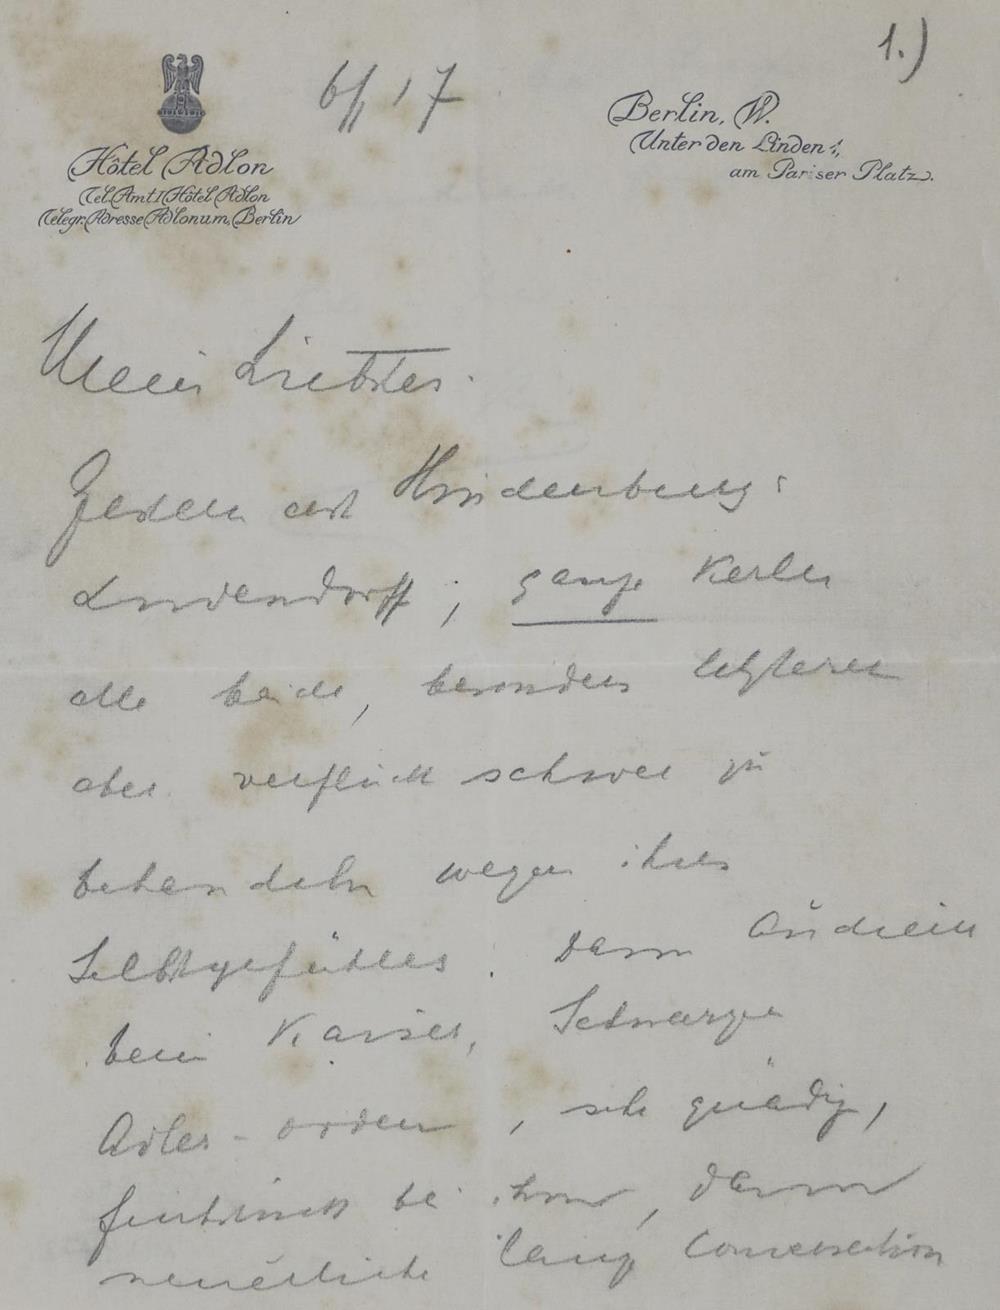 1.)
6/1 17
Hôtel Adlon
Tel. Amt I Hôtel Adlon
Telegr. Adresse Adlonum, Berlin
Berlin, W.
Unter den Linden 1,
am Pariser Platz.
Mein Liebster.
Gestern erst Hindenburg:
Ludendorff, ganze Kerle
alle beide, besonders letzterer
aber verflucht schwer zu
behandeln wegen ihres
Selbstgefühles. Dann Audienz
beim Kaiser, Schwarzen
Adler-orden, sehr gnädig,
Frühstück bei ihm, dann
neuerliche lange Conversation